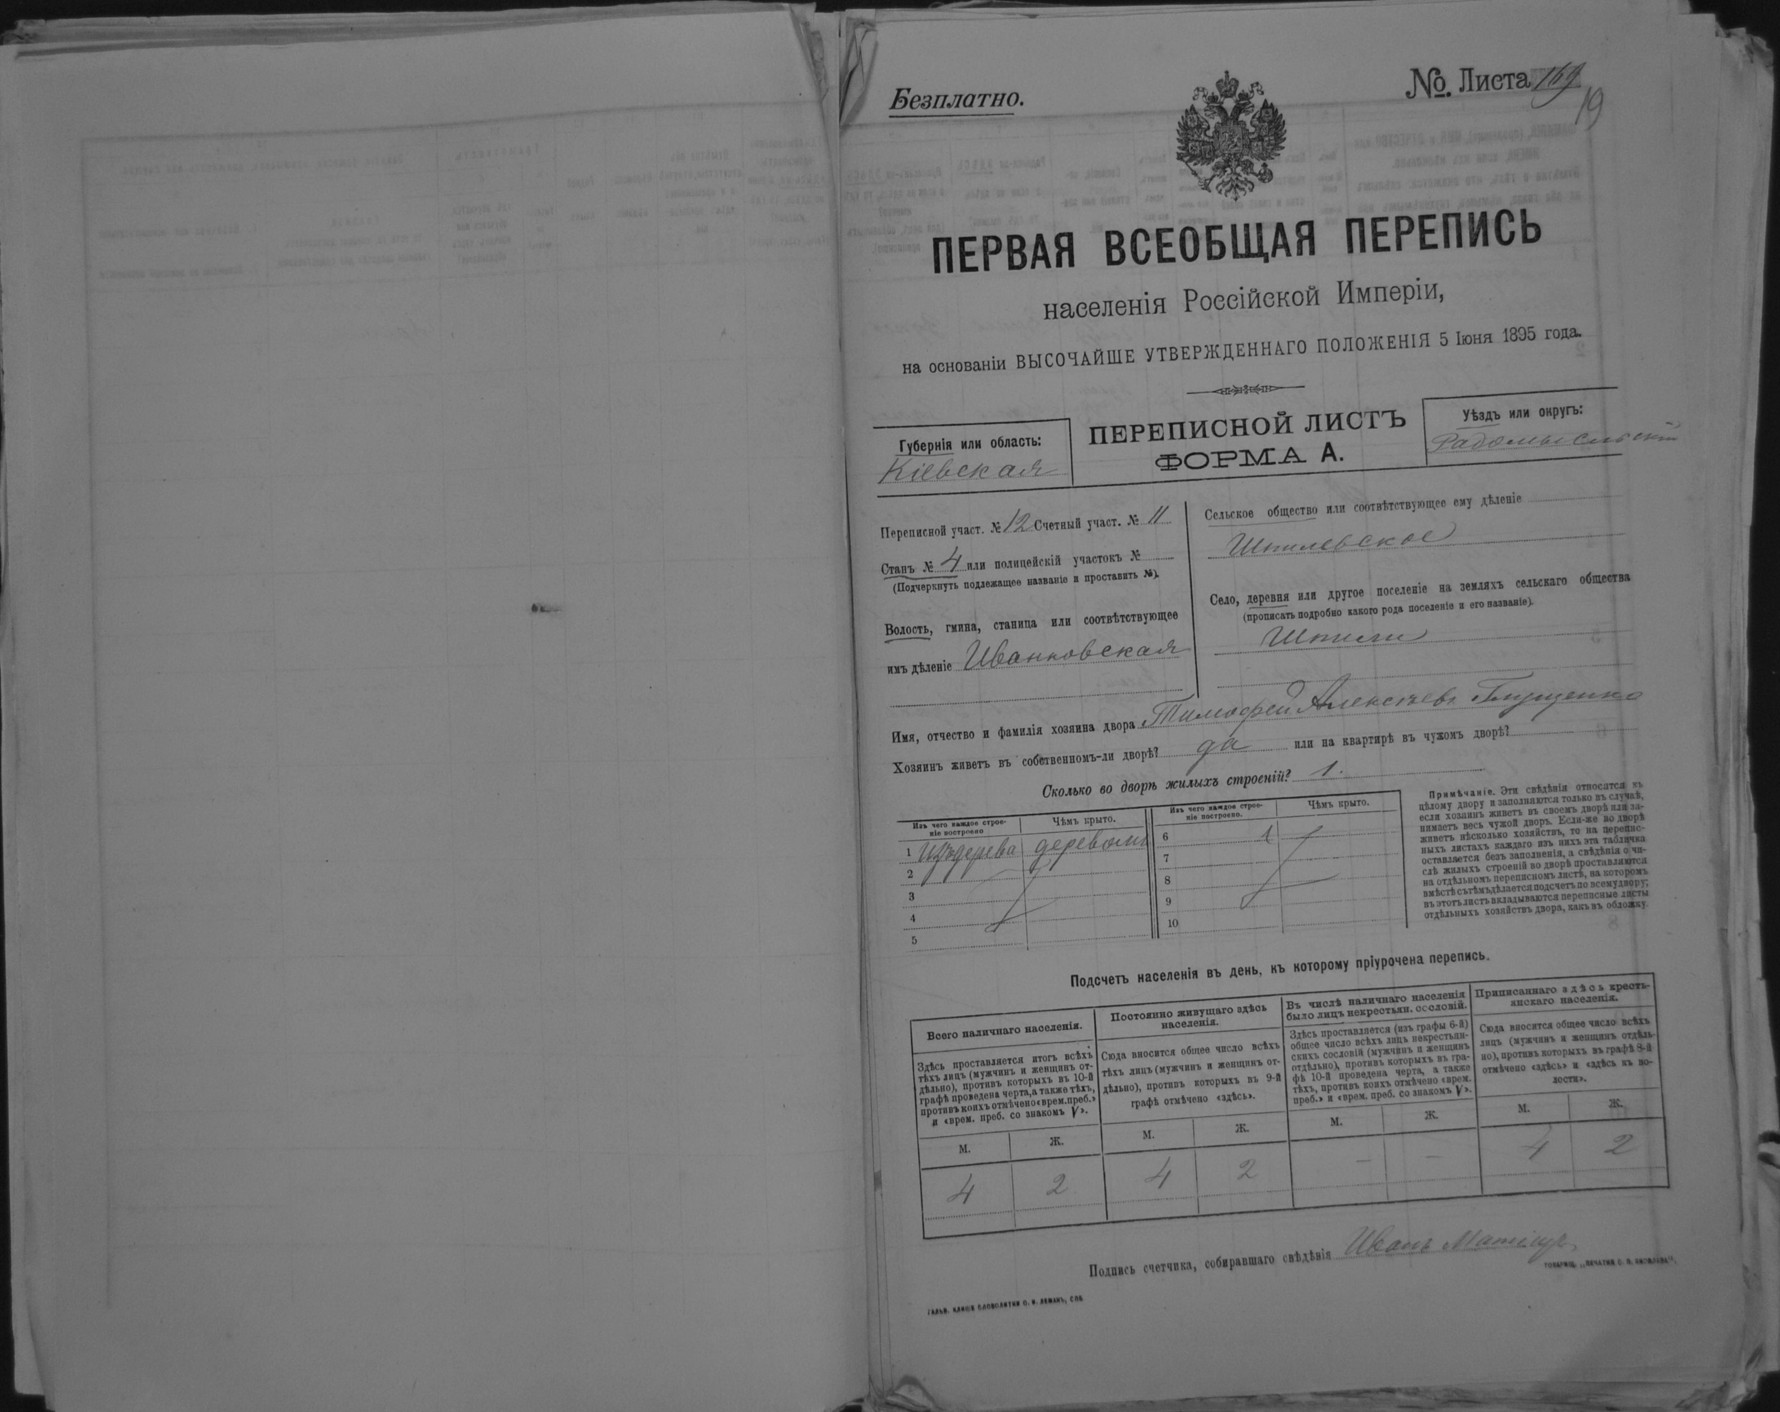 Безплатно.
№ Листа 169
19
ПЕРВАЯ ВСЕОБЩАЯ ПЕРЕПИСЬ
населенія Россійской Имперіи,
на основаніи ВЫСОЧАЙШЕ УТВЕРЖДЕННАГО ПОЛОЖЕНІЯ 5 Іюня 1895 года.
Губернія или область:
Кіевская
ПЕРЕПИСНОЙ ЛИСТЪ
ФОРМА А.
Уѣздъ или округъ:
Радомысльскій
Переписной участ. № 12 Счетный участ. № 11
Станъ № 4 или полицейскій участокъ №
(Подчеркнуть подлежащее названіе и проставить №).
Волость, гмина, станица или соотвѣтствующее
имъ дѣленіе Иванковская
Сельское общество или соотвѣтствующее ему дѣленіе
Шпилевское
Село, деревня или другое поселеніе на земляхъ сельскаго общества
(прописать подробно какого рода поселеніе и его названіе).
Шпили
Имя, отчество и фамилія хозяина двора Тимофей Алексѣевъ Глущенко
Хозяинъ живетъ въ собственномъ-ли дворѣ? да или на квартирѣ въ чужомъ дворѣ?
Сколько во дворѣ жилыхъ строеній? 1.
Изъ чего каждое строеніе построено
Чѣмъ крыто.
Изъ чего каждое строеніе построено.
Чѣмъ крыто.
1 Изъ дерева деревомъ
2
3
4
5
6
7
8
9
10
Примѣчаніе. Эти свѣдѣнія относятся къ
цѣлому двору и заполняются только въ случаѣ,
если хозяинъ живетъ въ своемъ дворѣ или за-
нимаетъ весь чужой дворъ. Если-же во дворѣ
живетъ нѣсколько хозяйствъ, то на перепис-
ныхъ листахъ каждаго изъ нихъ эта табличка
оставляется безъ заполненія, а свѣдѣнія о чи-
слѣ жилыхъ строеній во дворѣ проставляются
на отдѣльномъ переписномъ листѣ, на которомъ
вмѣстѣ съ тѣмъ дѣлается подсчетъ по всему двору;
въ этотъ листъ вкладываются переписные листы
отдѣльныхъ хозяйствъ двора, какъ въ обложку.
Подсчетъ населенія въ день, къ которому пріурочена перепись.
Всего наличнаго населенія.
Здѣсь проставляется итогъ всѣхъ
тѣхъ лицъ (мужчинъ и женщинъ от-
дѣльно), противъ которыхъ въ 10-й
графѣ проведена черта, а также тѣхъ,
противъ коихъ отмѣчено «врем. преб.»
и «врем. преб. со знакомъ V».
М. Ж.
4 2
Постоянно живущаго здѣсь
населенія.
Сюда вносится общее число всѣхъ
тѣхъ лицъ (мужчинъ и женщинъ от-
дѣльно), противъ которыхъ въ 9-й
графѣ отмѣчено «здѣсь».
М. Ж.
4 2
Въ числѣ наличнаго населенія
было лицъ некрестьян. сословій.
Здѣсь проставляется (изъ графы 6-й)
общее число всѣхъ лицъ некрестьян-
скихъ сословій (мужчинъ и женщинъ
отдѣльно), противъ которыхъ въ гра-
фѣ 10-й проведена черта, а также
тѣхъ, противъ коихъ отмѣчено «врем.
преб.» и «врем. преб. со знакомъ V».
М. Ж.
– –
Приписаннаго здѣсь кресть-
янскаго населенія.
Сюда вносится общее число всѣхъ
лицъ (мужчинъ и женщинъ отдѣль-
но), противъ которыхъ въ графѣ 8-й
отмѣчено «здѣсь» и «здѣсь къ во-
лости».
М. Ж.
4 2
Подпись счетчика, собиравшаго свѣдѣнія Иванъ
ГАЛЬВ. КЛИШЕ СЛОВОЛИТНИ О. И. ЛЕМАНЪ, СПБ.